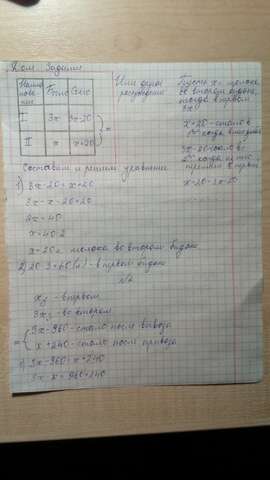 Дом. Задание
Наименование Было Стало
I 3x 3x-20
II x x+20
=
Или другое рассуждение
Пусть x л молока
во втором бидоне,
тогда в первом
3x
x+20 - стало в
когда
3x-20 стало в
когда
в первом
Составим и решим уравнение
1) 3x-20=x+20
3x-x=20+20
2x=40
x=40:2
x=20 л молока во втором бидоне
2) 20·3=60(л) - в первом бидоне
№2
x - в первом
3x - во втором
= { 3x-960 - стало после вывоза
x+240 - стало после привоза
1) 3x-960=x+240
3x-x=960+240